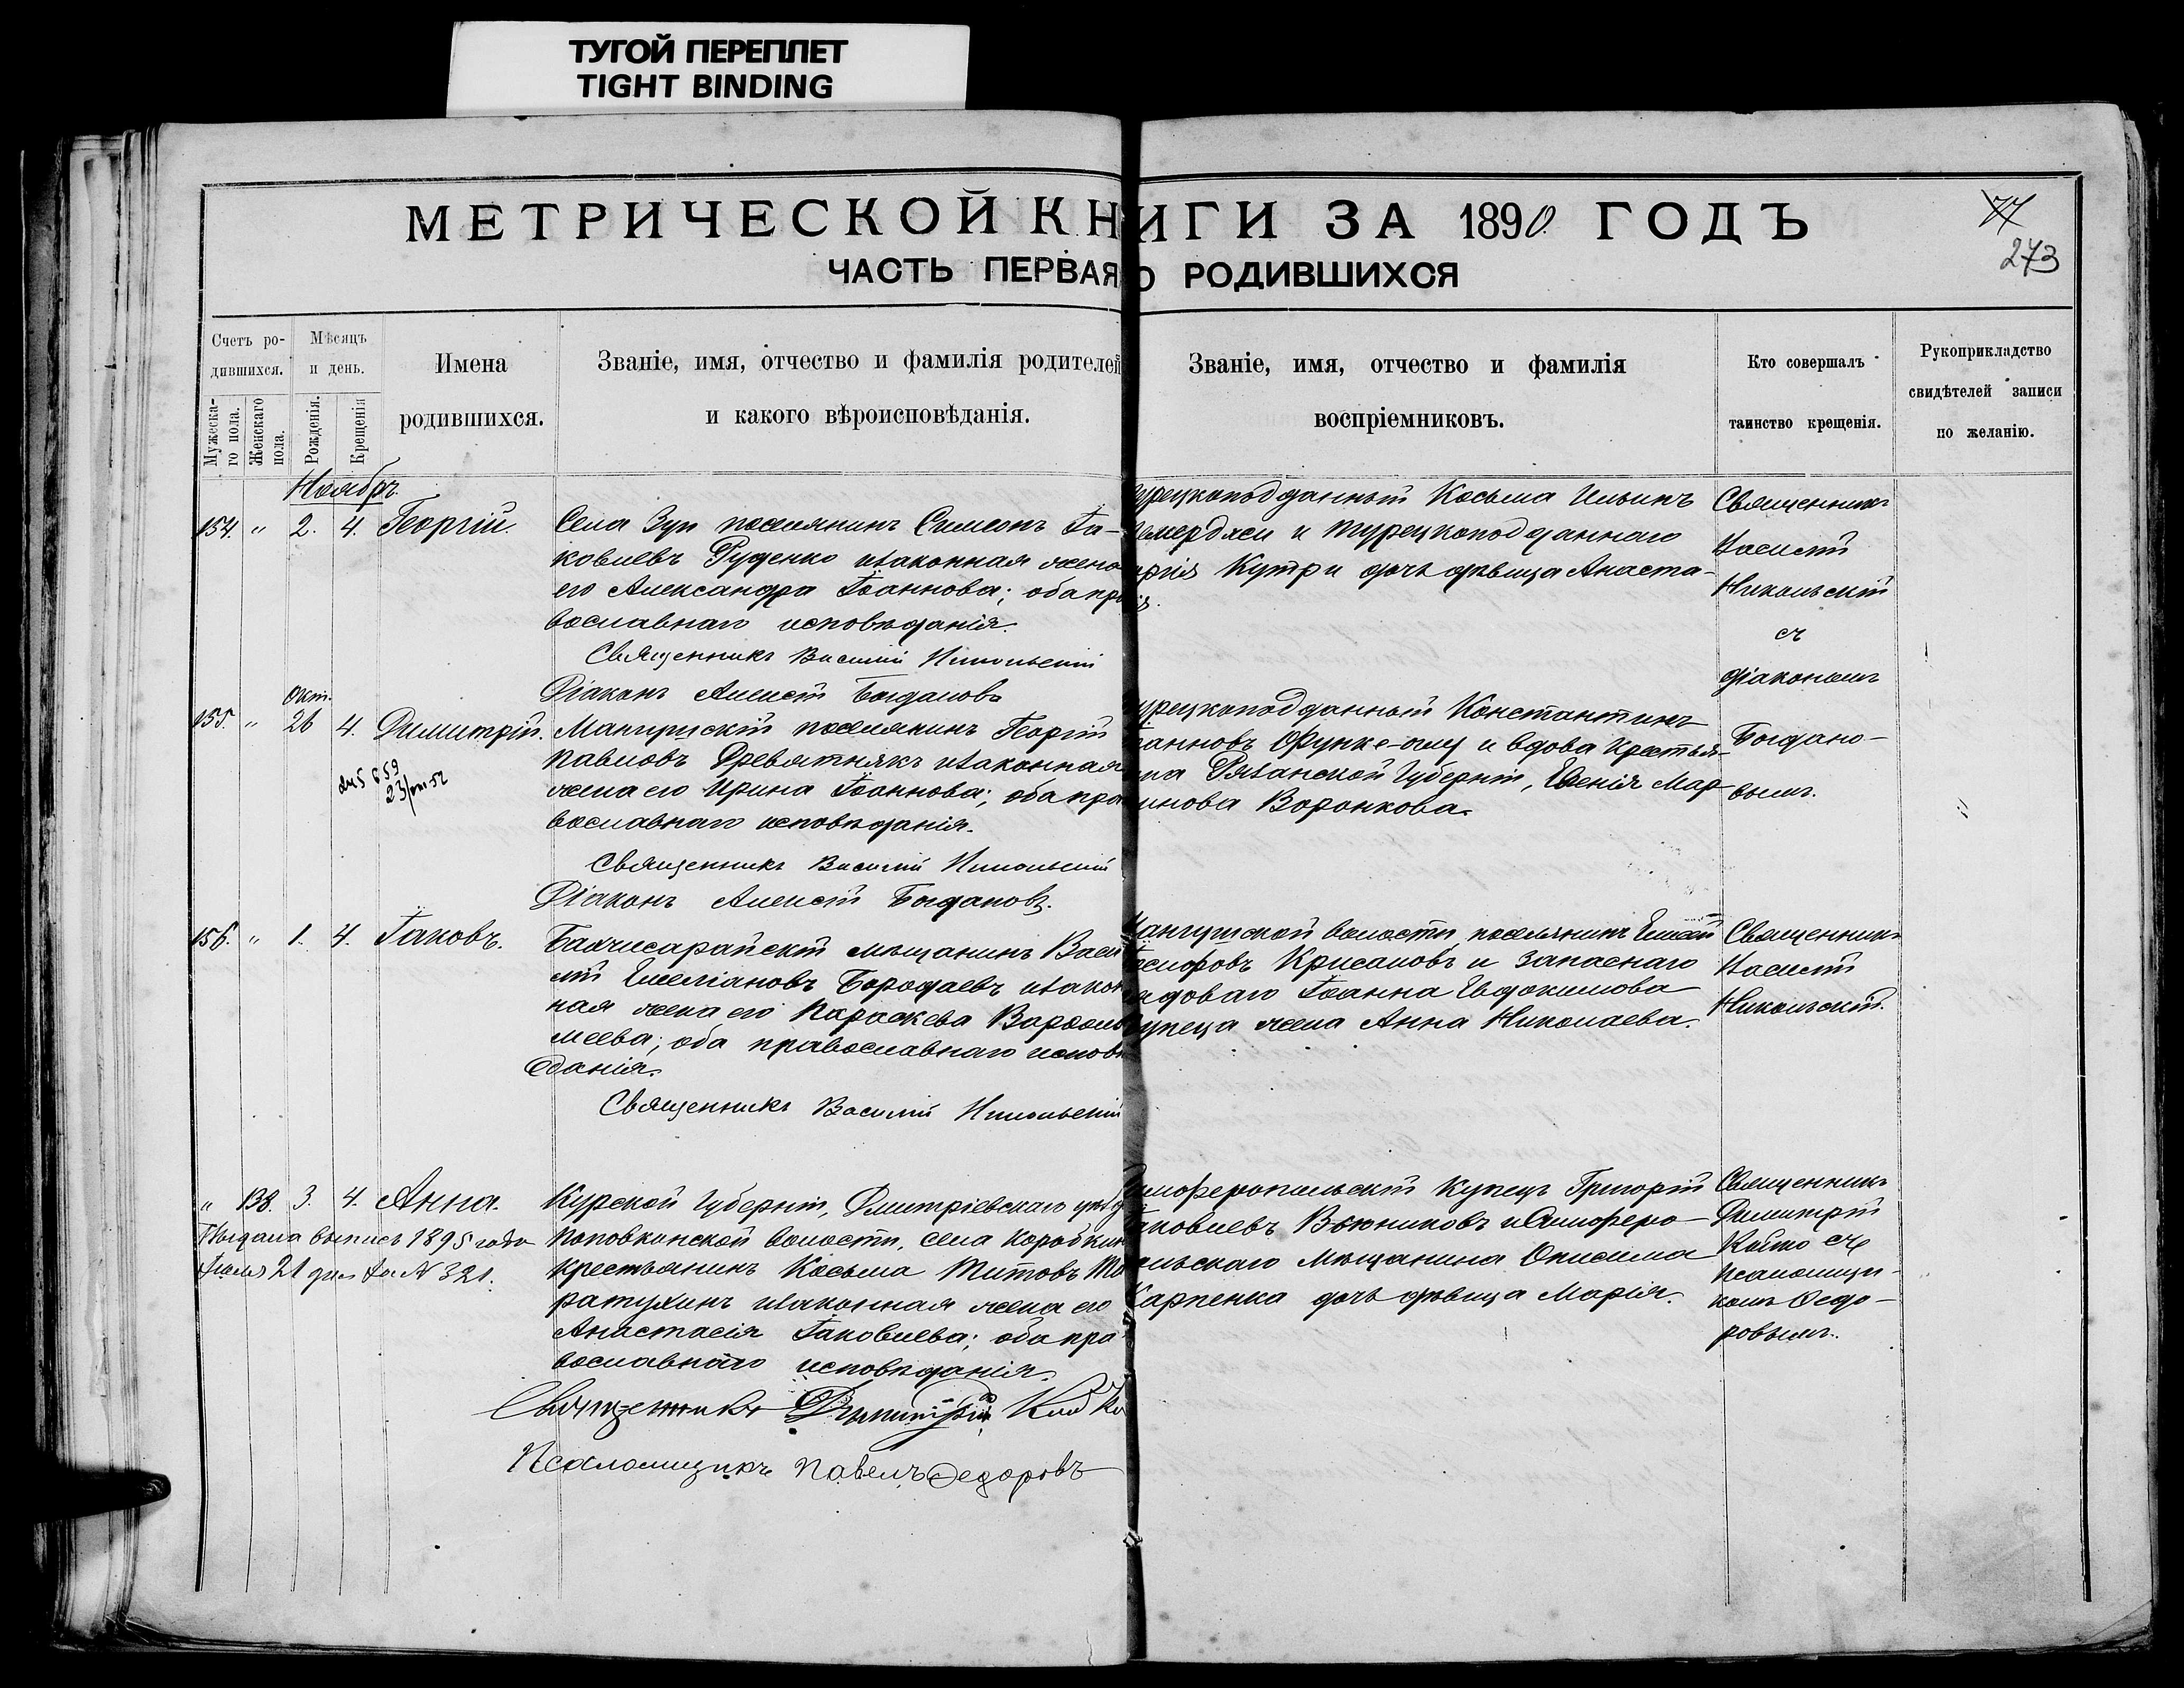 ТУГОЙ ПЕРЕПЛЕТ
TIGHT BINDING
МЕТРИЧЕСКОЙ КНИГИ ЗА 1890 ГОДЪ
ЧАСТЬ ПЕРВАЯ О РОДИВШИХСЯ
77
273
Счетъ ро-
дившихся.
Мужеска-
го пола.
Женскаго
пола.
Мѣсяцъ
и день.
Рожденія.
Крещенія
Имена
родившихся.
Званіе, имя, отчество и фамилія родителей
и какого вѣроисповѣданія.
Званіе, имя, отчество и фамилія
воспріемниковъ.
Кто совершалъ
таинство крещенія.
Рукоприкладство
свидѣтелей записи
по желанію.
Ноябрь
154. " 2. 4. Георгій.
Села Зуи поселянинъ Симеонъ Іа-
ковлевъ Руденко и законная жена
его Александра Іоаннова; оба пра
вославнаго исповѣданія.
Священникъ Василій Никольскій
Діаконъ Алексій Богдановъ
урецкоподданный Косьма Ильинъ
и турецкоподданнаго
Кутри дочь дѣвица Анаста-
Священникъ
Василій
Никольскій
съ
діакономъ
Богдано-
вымъ.
Окт.
155. " 26 4. Димитрій.
Мангушскій поселянинъ Георгій
Павловъ Древятнякъ и законная
жена его Ирина Іоаннова; оба пра
вославнаго исповѣданія.
Священникъ Василій Никольскій
Діаконъ Алексій Богдановъ.
урецкоподданный Константинъ
анновъ и вдова крестья-
ина Рязанской Губерніи, Мар
инова Воронкова.
156. " 1. 4. Іаковъ.
Бахчисарайскій мѣщанинъ Васи
лій Емеліановъ Бородаевъ и закон
ная жена его Параскева Варѳоло
меева; оба православнаго исповѣ
данія.
Священникъ Василій Никольскій
ангушской волости поселянинъ
Крисановъ и запаснаго
ядоваго Іоанна Евдокимова
упеца жена Анна Николаева.
Священникъ
Василій
Никольскій.
" 138. 3. 4. Анна.
Выдана выпись 1895 года
21 дня за № 321.
Курской Губерніи, Дмитріевскаго уѣзд
Поповкинской волости, села Коробкин
крестьянинъ Косьма Титовъ
ратухинъ и законная жена его
Анастасія Іаковлева; оба пра
вославнаго исповѣданія.
Священникъ Димитрій Койко
Псаломщикъ Павелъ Ѳедоровъ
имферопольскій купецъ Григорій
аковлевъ и Симферо-
ольскаго мѣщанина Онисима
Карпенка дочь дѣвица Марія.
Священникъ
Димитрій
Койко съ
псаломщи-
комъ Ѳедо-
ровымъ.